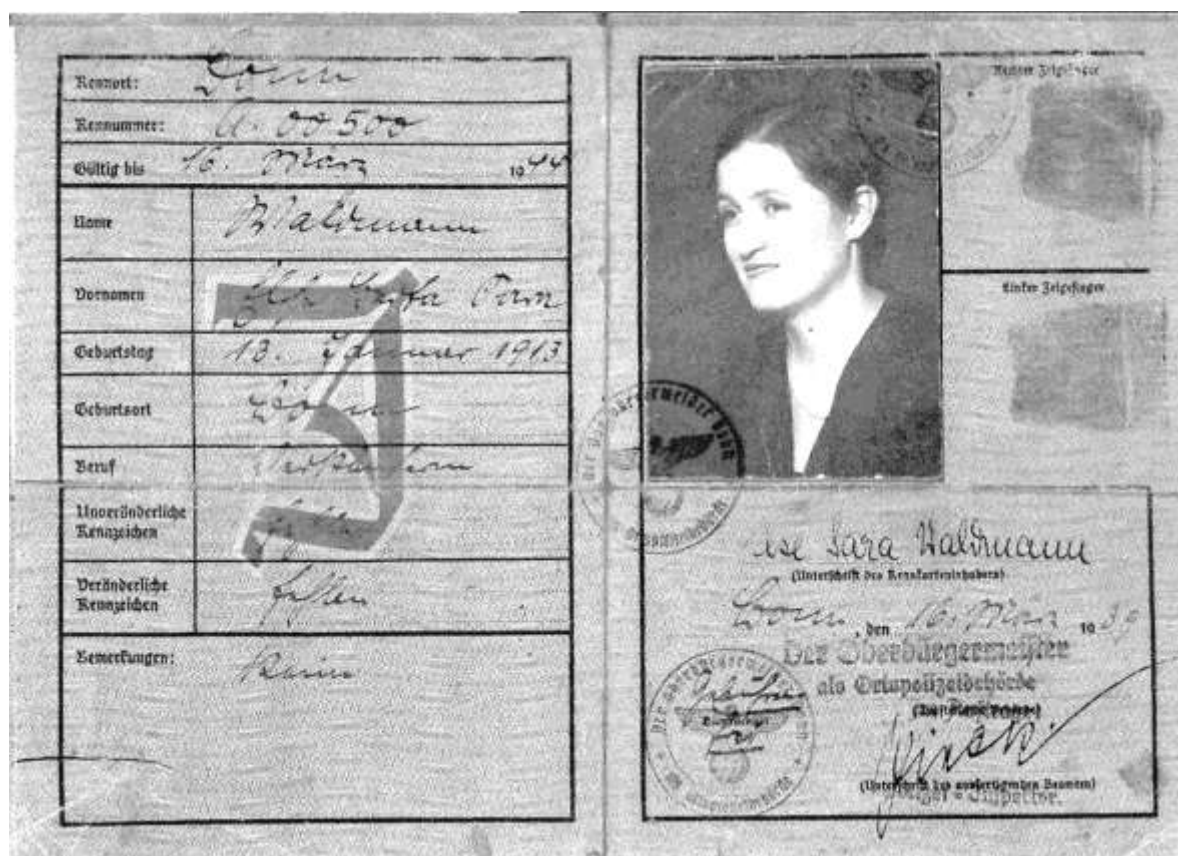 Kennort: Bonn
Kennummer: A. 00500
Gültig bis 16. März 1944
Name Waldmann
Vornamen Sara
Geburtstag 13. Januar 1913
Geburtsort Bonn
Beruf
Unveränderliche
Kennzeichen
Veränderliche
Kennzeichen fehlen
Bemerkungen: Keine
J
Rechter Zeigefinger
Linker Zeigefinger
Der Oberbürgermeister Bonn
Ortspolizeibehörde
Ilse Sara Waldmann
(Unterschrift des Kennkarteninhabers)
Bonn, den 16. März 1939
Der Oberbürgermeister
als Ortspolizeibehörde
(Unterschrift des ausfertigenden Beamten)